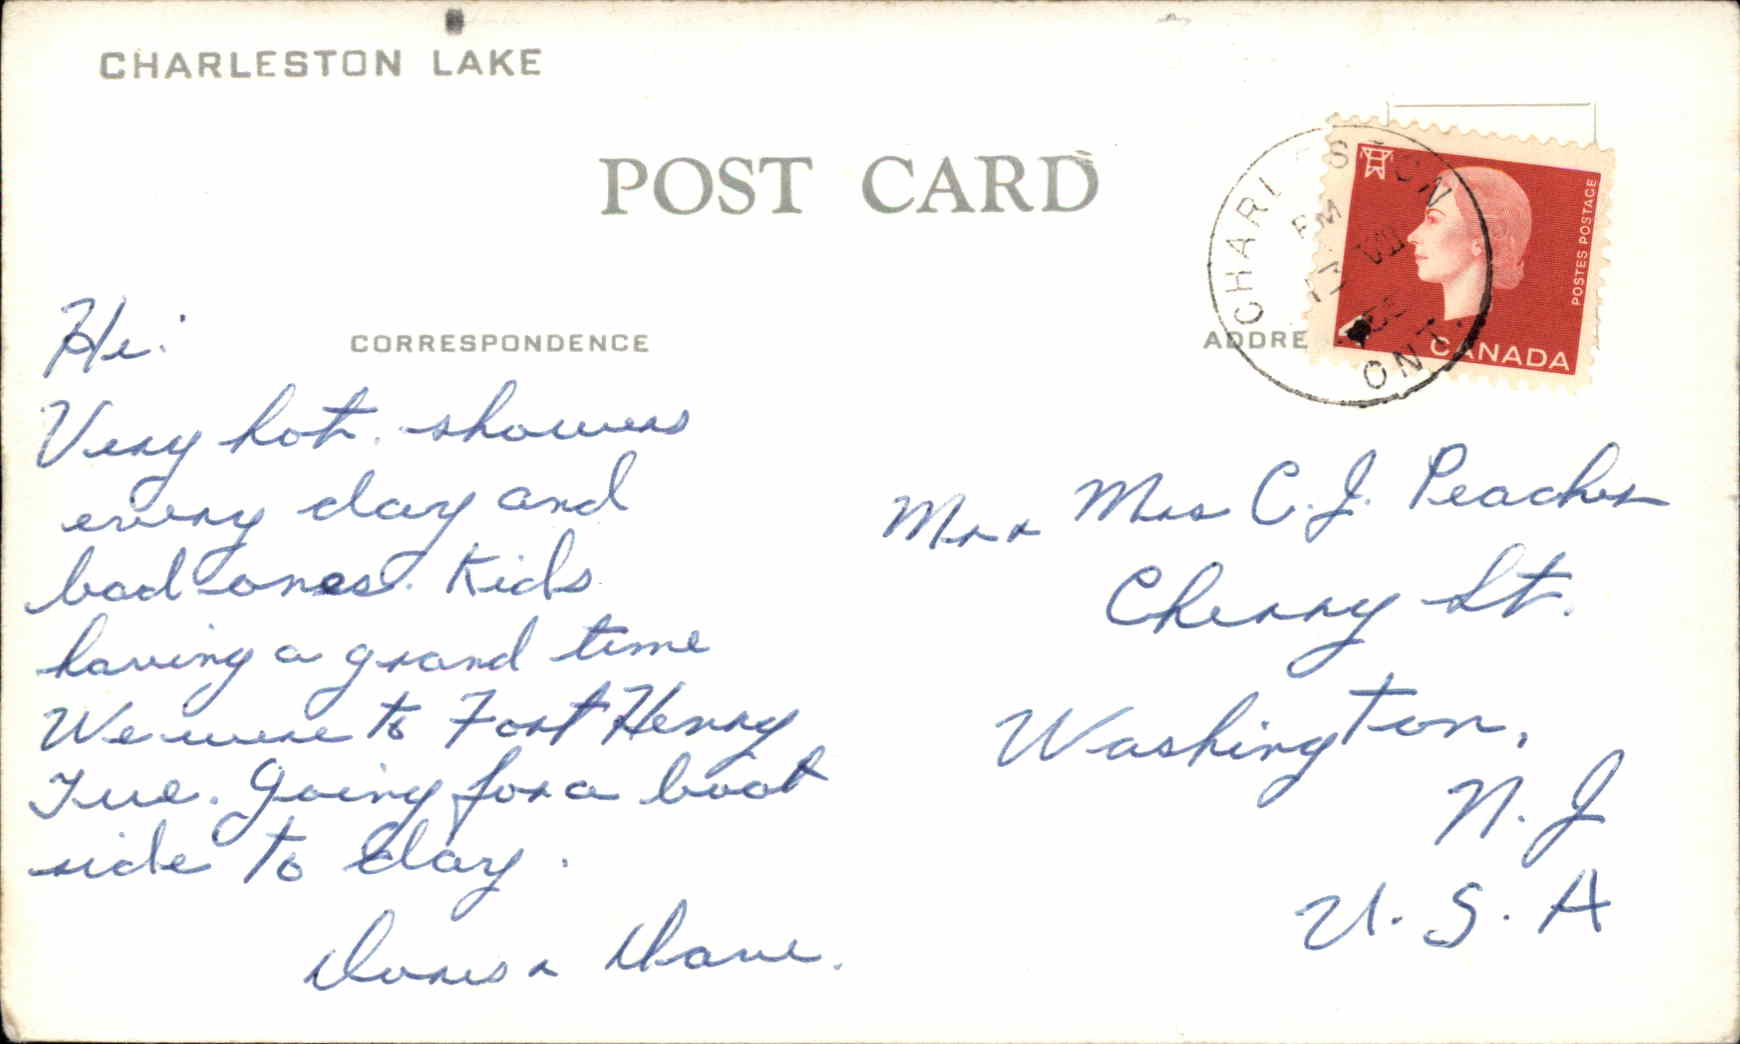 CHARLESTON LAKE
POST CARD
CHARLESTON
PM
13 VII
ONT.
POSTES POSTAGE
4
CANADA
CORRESPONDENCE
ADDRE
Hi:
Very hot. showers
every day and
bad ones. Kids
having a grand time
We were to Fort Henry
Tue. Going for a boat
ride to day.
Doris + Dave.
Mr + Mrs C. J. Peacher
Cherry St.
Washington,
N. J
U. S. A